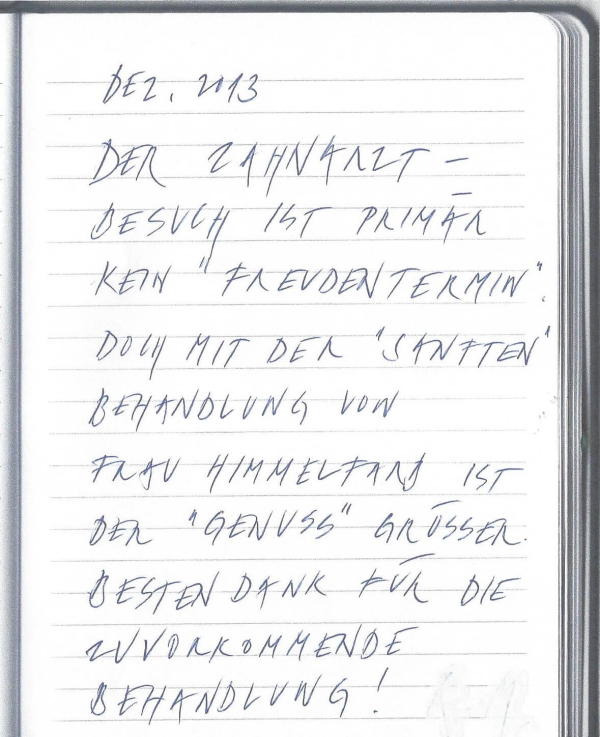 DEZ. 2013
DER ZAHNARZT –
BESUCH IST PRIMÄR
KEIN "FREUDENTERMIN".
DOCH MIT DER "SANFTEN"
BEHANDLUNG VON
FRAU HIMMELFARB IST
DER "GENUSS" GRÖSSER.
BESTEN DANK FÜR DIE
ZUVORKOMMENDE
BEHANDLUNG!